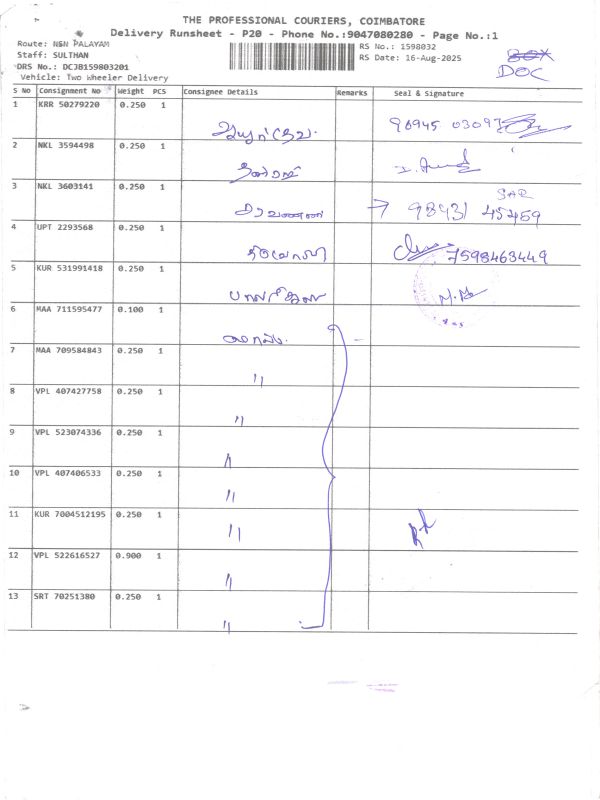 THE PROFESSIONAL COURIERS, COIMBATORE
Delivery Runsheet - P20 - Phone No.:9047080280 - Page No.:1
Route: NSN PALAYAM
Staff: SULTHAN
DRS No.: DCJB159803201
Vehicle: Two Wheeler Delivery
RS No.: 1598032
RS Date: 16-Aug-2025
BOX
DOC
S No Consignment No Weight PCS Consignee Details Remarks Seal & Signature
1 KRR 50279220 0.250 1
2 NKL 3594498 0.250 1
3 NKL 3603141 0.250 1 சரவணன் → 98431 45459
SAR
4 UPT 2293568 0.250 1 7598463449
5 KUR 531991418 0.250 1
6 MAA 711595477 0.100 1
7 MAA 709584843 0.250 1 "
8 VPL 407427758 0.250 1 "
9 VPL 523074336 0.250 1 "
10 VPL 407406533 0.250 1 "
11 KUR 7004512195 0.250 1 "
12 VPL 522616527 0.900 1 "
13 SRT 70251380 0.250 1 "